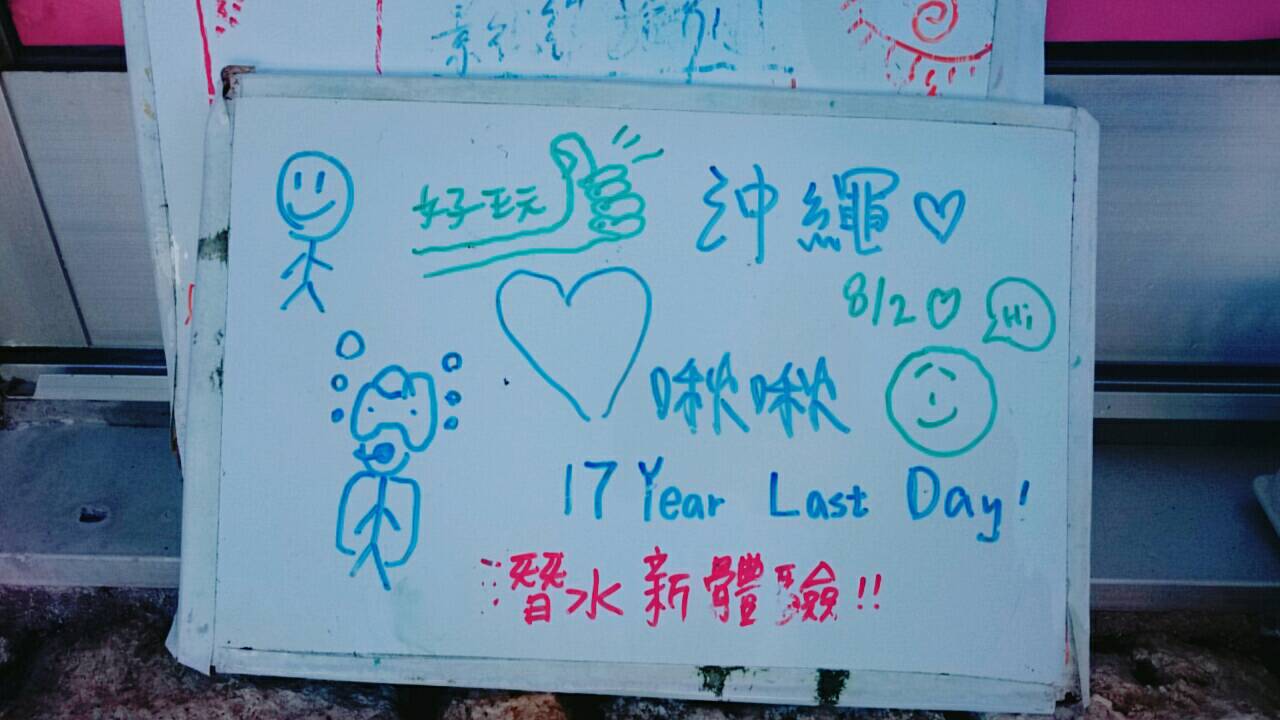 好玩 沖繩
8/2 Hi
啾啾
17 Year Last Day!
潛水新體驗!!